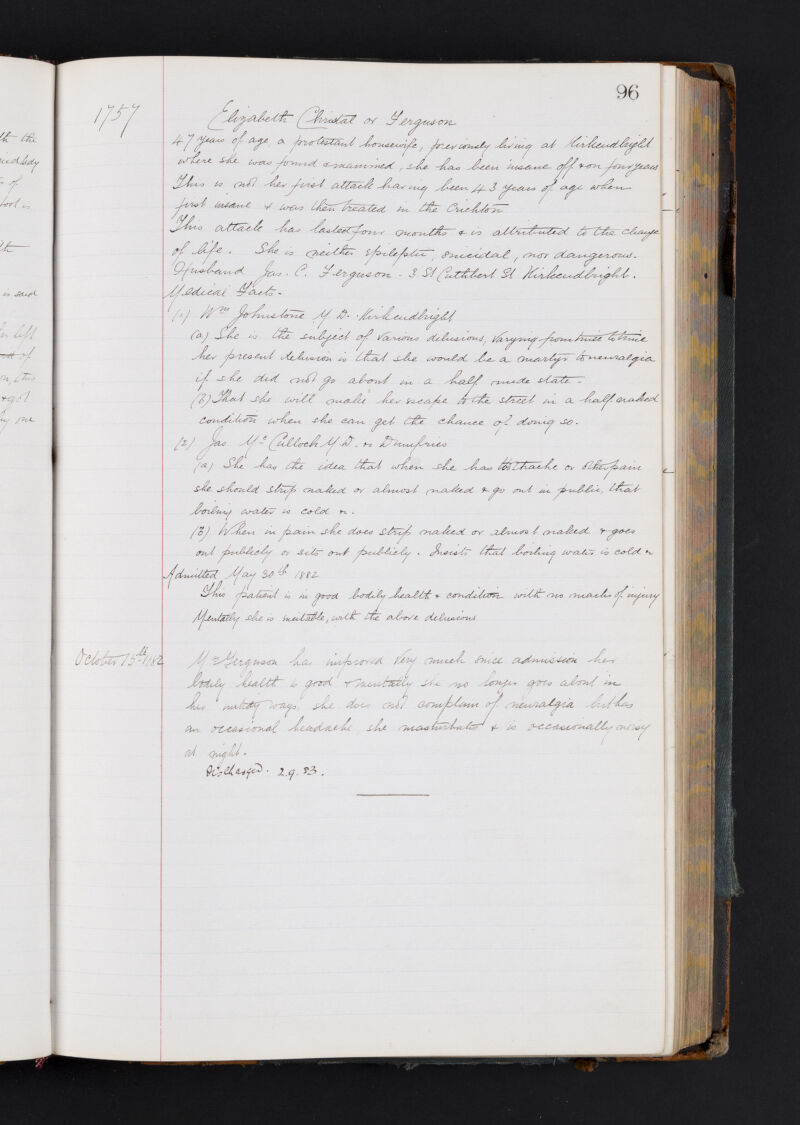 96
1757
Elizabeth Christal or Ferguson
47 years of age, a protestant housewife, previously living at Kirkcudbright
where she was found & examined, she has been insane off & on four years
This is not her first attack having been 43 years of age when
first insane & was then treated in the Crichton
This attack has lasted four months & is attributed to the change
of life. She is neither epileptic, suicidal, nor dangerous.
Husband Jas. C. Ferguson - 3 St Cuthbert St Kirkcudbright.
Medical Facts.
(1) Wm Johnstone M.D. Kirkcudbright
(a) She is the subject of various delusions, varying from time to time
her present delusion is that she would be a martyr to neuralgia
if she did not go about in a half nude state.
(B) That she will make her escape to the street in a half naked
condition when she can get the chance of doing so.
(2) Jas McCulloch M.D. Dumfries
(a) She has the idea that when she has toothache or other pain
she should strip naked or almost naked & go out in public, that
boiling water is cold &.
(B) When in pain she does strip naked or almost naked & goes
out publicly or sits out publicly. Insists that boiling water is cold &
Admitted May 30th 1882
This patient is in good bodily health & condition with no marks of injury
Mentally she is excitable, with the above delusions
October 15th/82
Mrs Ferguson has improved very much since admission her
bodily health is good & mentally she no longer goes about in
her nudity ways, she does not complain of neuralgia but has
an occasional headache, she masturbates & is occasionally noisy
at night.
Discharged. 2.9.83.
th the
of
is
th
is said
left
of
this
& got
one